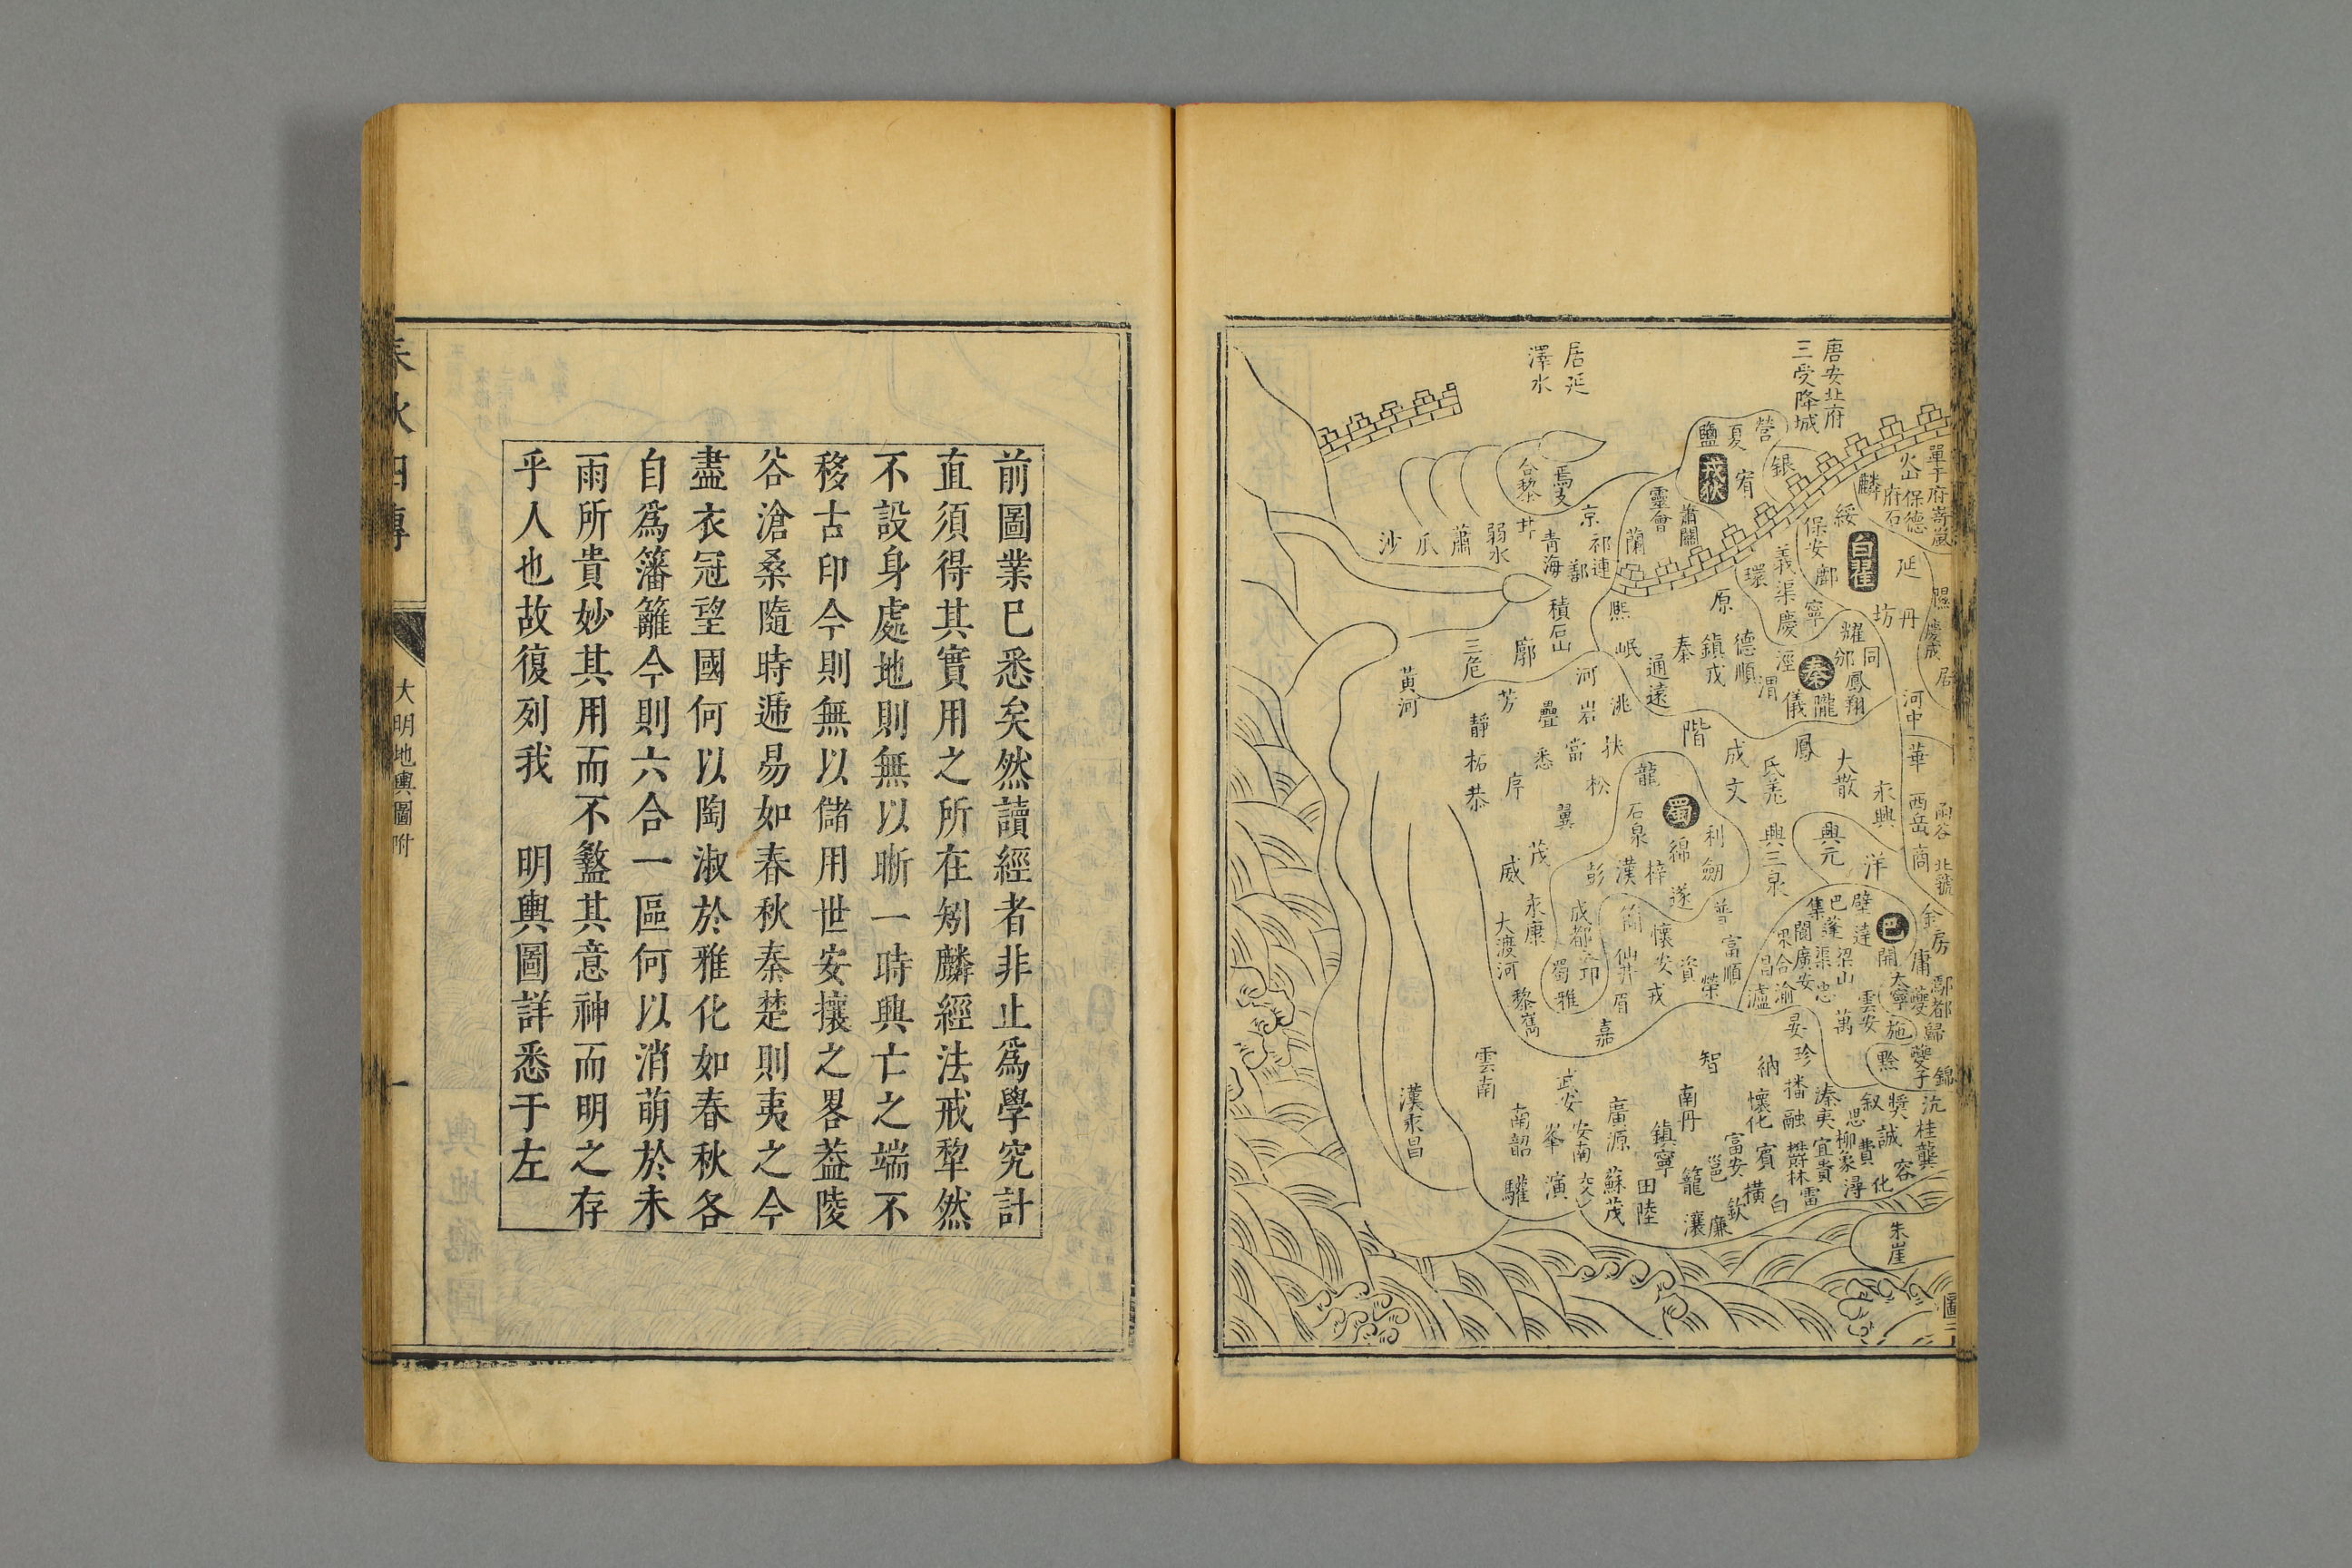 唐安北府
三受降城
居延
澤水
單于府
岢嵐
火山
保德
府石
麟
銀
營
夏
鹽
宥
戎狄
綏
保安
鄜
白翟
延
丹
坊
隰
慶成
居
靈會
蕭關
環
義渠
慶
寧
原
焉支
合黎
京
祁連
蘭
鄯
青海
甘
弱水
肅
瓜
沙
積石山
熙
岷
廓
三危
黃河
河
洮
通遠
秦
鎮戎
德順
涇
渭
秦
耀
同
邠
鳳翔
隴
儀
河中
華
西岳
商
函谷
北虢
芳
疊
岩
靜
柘
恭
悉
當
扶
松
階
成
文
氐羌
鳳
大散
永興
龍
石泉
蜀
利
劍
綿
梓
漢
彭
遂
翼
茂
威
永康
大渡河
興三泉
興元
洋
金
房
普
富順
成都
簡
懷安
資
榮
仙井
眉
戎
蜀
邛
雅
黎
嶲
嘉
集
巴
蓬
壁
達
巴
開
閬
渠
廣安
梁山
合
昌
渝
瀘
忠
萬
雲安
大寧
夔
庸
鄢都
歸
夔子
施
黔
錦
雲南
漢永昌
南詔
驩
武安
峯
演
安南
交
廣源
蘇茂
智
南丹
鎮寧
田
陸
納
晏
珍
播
懷化
融
溱
夷
思
敘
獎
沅
桂
龔
誠
容
費
化
潯
柳
象
宜
貴
鬱林
雷
賓
富安
邕
籠
橫
白
欽
廉
瀼
朱崖
前圖業已悉矣然讀經者非止爲學究計
直須得其實用之所在矧麟經法戒犂然
不設身處地則無以晰一時興亡之端不
移古印今則無以儲用世安攘之畧葢陵
谷滄桑隨時遞易如春秋秦楚則夷之今
盡衣冠望國何以陶淑於雅化如春秋各
自爲籓籬今則六合一區何以消萌於未
雨所貴妙其用而不盭其意神而明之存
乎人也故復列我　明輿圖詳悉于左
春秋四傳
大明地輿圖附
一